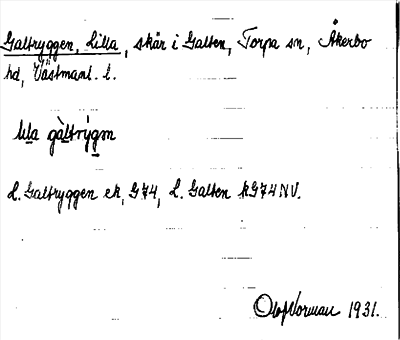 Galtryggen, Lilla, skär i Galten, Torpa sn, Åkerbo
hd, Västmanl. l.
lila gàltrýgən
L. Galtryggen ek, G74, L. Galten kG74NV.
Olof Norman 1931.